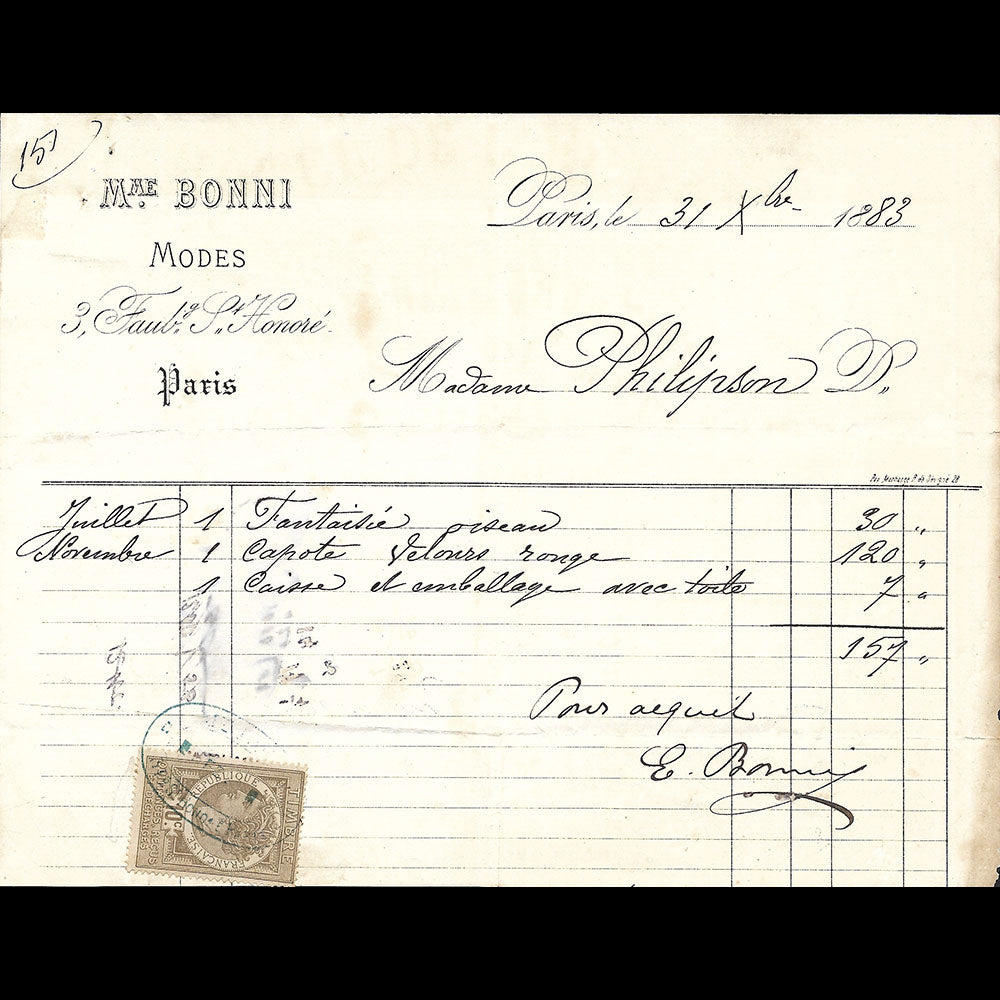 15)
MME BONNI
MODES
3, Faubg. St. Honoré.
Paris
Paris, le 31 Xbre 1883
Madame Philipson D.
Juillet 1 Fantaisie oiseau 30 "
Novembre 1 Capote Velours rouge 120 "
1 Caisse et emballage avec toile 7 "
157 "
Pour acquit
E. Bonni
TIMBRE
RÉPUBLIQUE
FRANÇAISE
10c